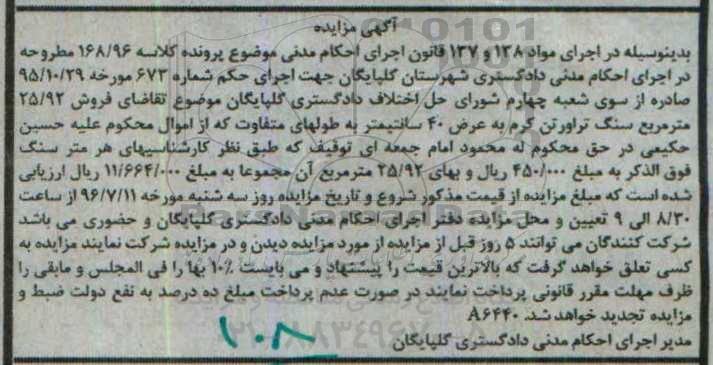 آگهی مزایده
بدینوسیله در اجرای مواد ۱۳۸ و ۱۳۷ قانون اجرای احکام مدنی موضوع پرونده کلاسه ۱۶۸/۹۶ مطروحه
در اجرای احکام مدنی دادگستری شهرستان گلپایگان جهت اجرای حکم شماره ۶۷۳ مورخه ۹۵/۱۰/۲۹
صادره از سوی شعبه چهارم شورای حل اختلاف دادگستری گلپایگان موضوع تقاضای فروش ۲۵/۹۲
مترمربع سنگ تراورتن کرم به عرض ۴۰ سانتیمتر به طولهای متفاوت که از اموال محکوم علیه حسین
حکیمی در حق محکوم له محمود امام جمعه ای توقیف که طبق نظر کارشناسیهای هر متر سنگ
فوق الذکر به مبلغ ۴۵۰/۰۰۰ ریال و بهای ۲۵/۹۲ مترمربع آن مجموعا به مبلغ ۱۱/۶۶۴/۰۰۰ ریال ارزیابی
شده است که مبلغ مزایده از قیمت مذکور شروع و تاریخ مزایده روز سه شنبه مورخه ۹۶/۷/۱۱ از ساعت
۸/۳۰ الی ۹ تعیین و محل مزایده دفتر اجرای احکام مدنی دادگستری گلپایگان و حضوری می باشد
شرکت کنندگان می توانند ۵ روز قبل از مزایده از مورد مزایده دیدن و در مزایده شرکت نمایند مزایده به
کسی تعلق خواهد گرفت که بالاترین قیمت را پیشنهاد و می بایست ۱۰٪ بها را فی المجلس و مابقی را
ظرف مهلت مقرر قانونی پرداخت نمایند در صورت عدم پرداخت مبلغ ده درصد به نفع دولت ضبط و
مزایده تجدید خواهد شد. ۸۶۴۴۰
مدیر اجرای احکام مدنی دادگستری گلپایگان
۱۰۸